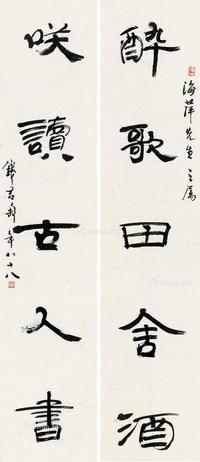 海萍先生之属
醉歌田舍酒
咲讀古人書
錢君匋年八十八